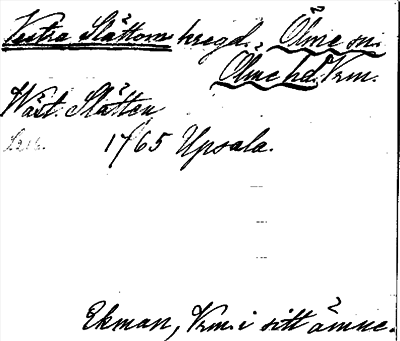 Vestra Slätten hregd. Ölme sn.
Ölme hd. Vrm.
Wäst. Slätten
1765 Upsala.
Ekman, Vrm. i sitt ämne.